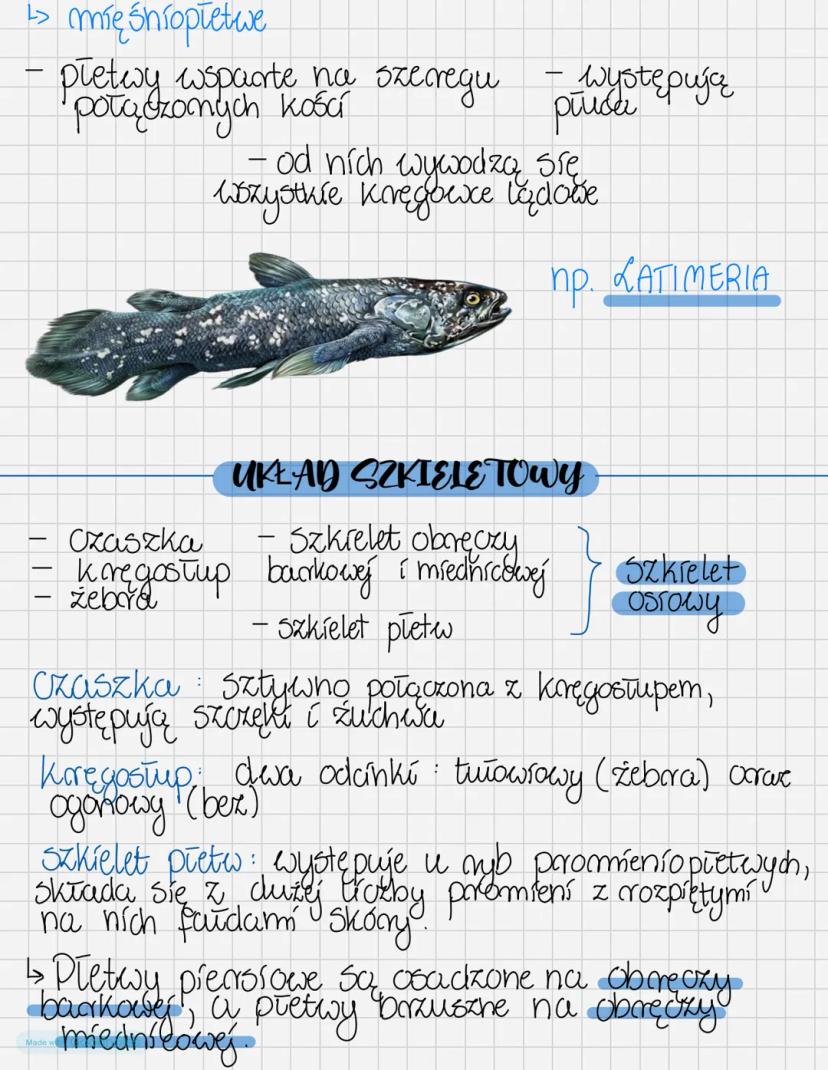 ↳ mięśniopłetwe
– płetwy wsparte na szeregu
połączonych kości
– występują
płuca
– od nich wywodzą się
wszystkie kręgowce lądowe
np. LATIMERIA
UKŁAD SZKIELETOWY
– czaszka
– kręgosłup
– żebra
– szkielet obręczy
barkowej i miednicowej
– szkielet płetw
szkielet
osiowy
Czaszka : sztywno połączona z kręgosłupem,
występują szczęki i żuchwa
Kręgosłup: dwa odcinki : tułowiowy (żebra) oraz
ogonowy (bez)
Szkielet płetw : występuje u ryb promieniopłetwych,
składa się z dużej liczby promieni z rozpiętymi
na nich fałdami skóry.
↳ Płetwy piersiowe są osadzone na obręczy
barkowej, a płetwy brzuszne na obręczy
miednicowej.
Made w